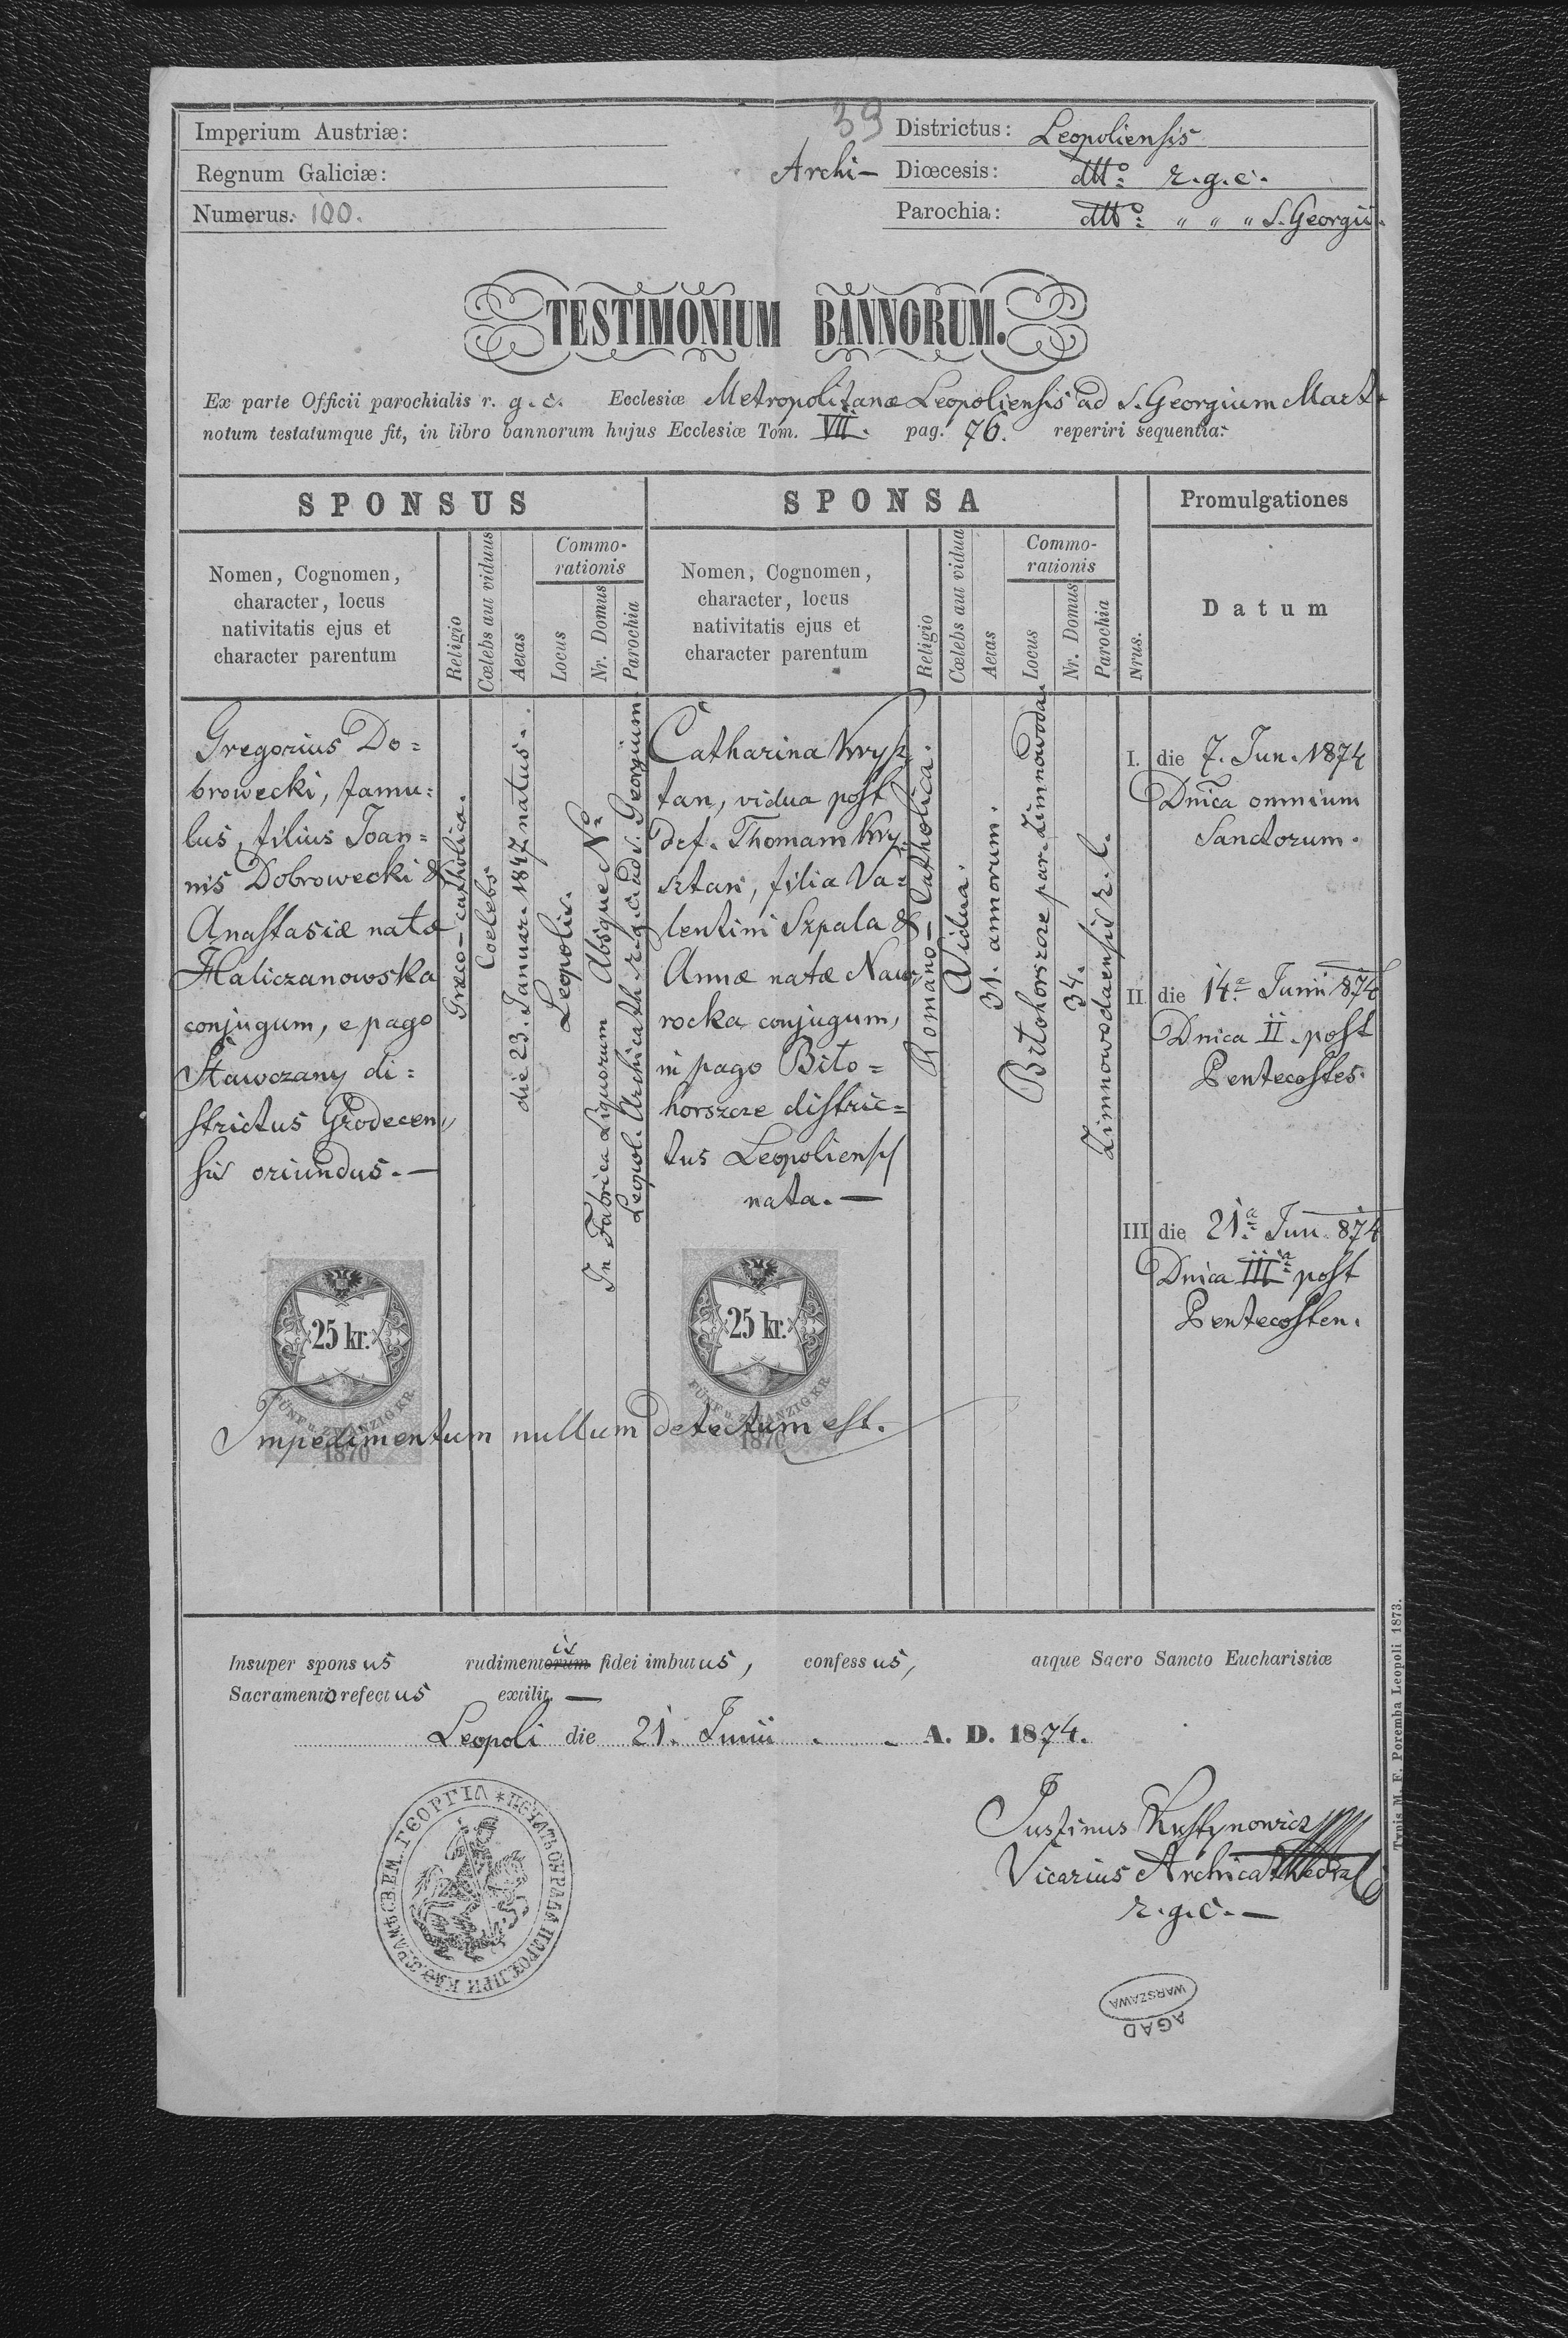 39
Imperium Austriæ:
Regnum Galiciæ:
Numerus: 100.
Districtus: Leopoliensis
Archi– Diœcesis: dtto: r. g. c.
Parochia: dtto: " " " S. Georgii.
TESTIMONIUM BANNORUM.
Ex parte Officii parochialis r. g. c. Ecclesiæ Metropolitanæ Leopoliensis ad S. Georgium Mart.
notum testatumque fit, in libro bannorum hujus Ecclesiæ Tom. VII. pag. 76. reperiri sequentia:
SPONSUS
Nomen, Cognomen,
character, locus
nativitatis ejus et
character parentum
Religio
Cœlebs aut viduus
Aetas
Commo-
rationis
Locus
Nr. Domus
Parochia
SPONSA
Nomen, Cognomen,
character, locus
nativitatis ejus et
character parentum
Religio
Cœlebs aut vidua
Aetas
Commo-
rationis
Locus
Nr. Domus
Parochia
Nrus.
Promulgationes
Datum
Gregorius Do=
browecki, famu=
lus, filius Joan=
nis Dobrowecki &
Anastasiæ natæ
Haliczanowska
conjugum, e pago
Stawczany di=
strictus Grodecen,
sis oriundus. —
Græco-catholica.
Coelebs
die 23. Januar. 1847 natus.
Leopolis.
In Fabrica Liquorum Absque No
Leopol. Archicath. r. g. c. ad S. Georgium
Catharina Krysz
tan, vidua post
def. Thomam Kry=
sztan, filia Va=
lentini Szpala &
Annæ natæ Naw,
rocka conjugum,
in pago Bito=
horszcze distric=
tus Leopoliensis
nata. —
Romano-Catholica.
Vidua.
31. annorum.
Bitohorszcze par. Zimnowoda.
34.
Zimnowodaensis r. l.
I. die 7. Jun. 1874
Dnica omnium
Sanctorum.
II. die 14.a Junii 874
Dnica II. post
Pentecostes.
III. die 21.a Jun. 874
Dnica IIIa post
Pentecosten.
25 kr.
FÜNF u. ZWANZIG KR.
1870
25 kr.
FÜNF u. ZWANZIG KR.
1870
Impedimentum nullum detectum est.
Insuper sponsus rudimentorum is fidei imbutus, confessus, atque Sacro Sancto Eucharistiæ
Sacramento refectus extitit. —
Leopoli die 21. Junii A. D. 1874.
Justinus
Vicarius Archicathedral
r. g. c. —
WARSZAWA
AGAD
Typis M. F. Poremba Leopoli 1873.